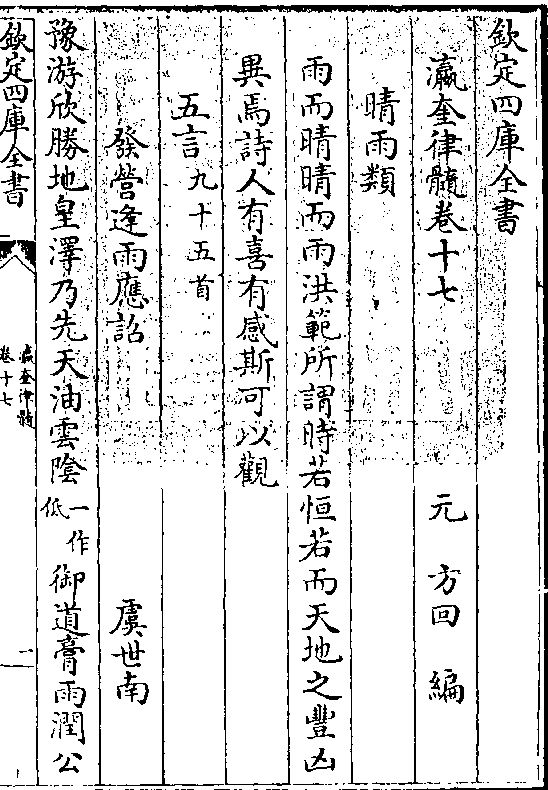 欽定四庫全書
瀛奎律髓卷十七
元 方回 編
晴雨類
雨而晴晴而雨洪範所謂時若恒若而天地之豐凶
異焉詩人有喜有感斯可以觀
五言九十五首
發營逢雨應詔
虞世南
豫游欣勝地皇澤乃先天油雲陰一作低御道膏雨潤公
欽定四庫全書
瀛奎律髓
卷十七
一